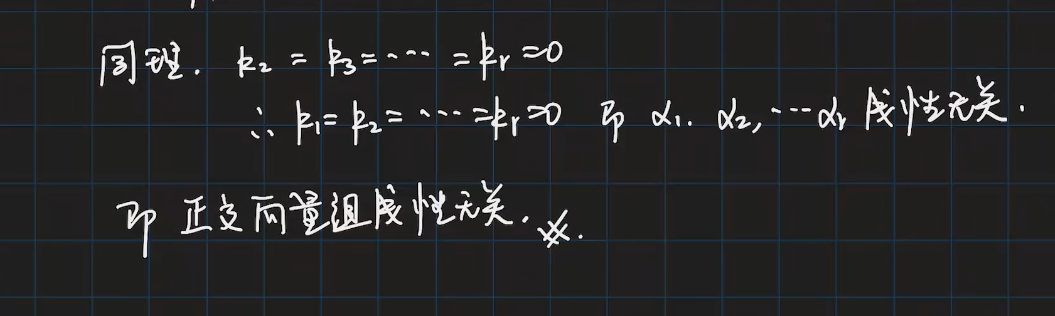 同理. k₂ = k₃ = ⋯ = kᵣ = 0
∴ k₁ = k₂ = ⋯ = kᵣ = 0 即 α₁. α₂, ⋯ αᵣ 线性无关.
即 正交向量组线性无关. ※.